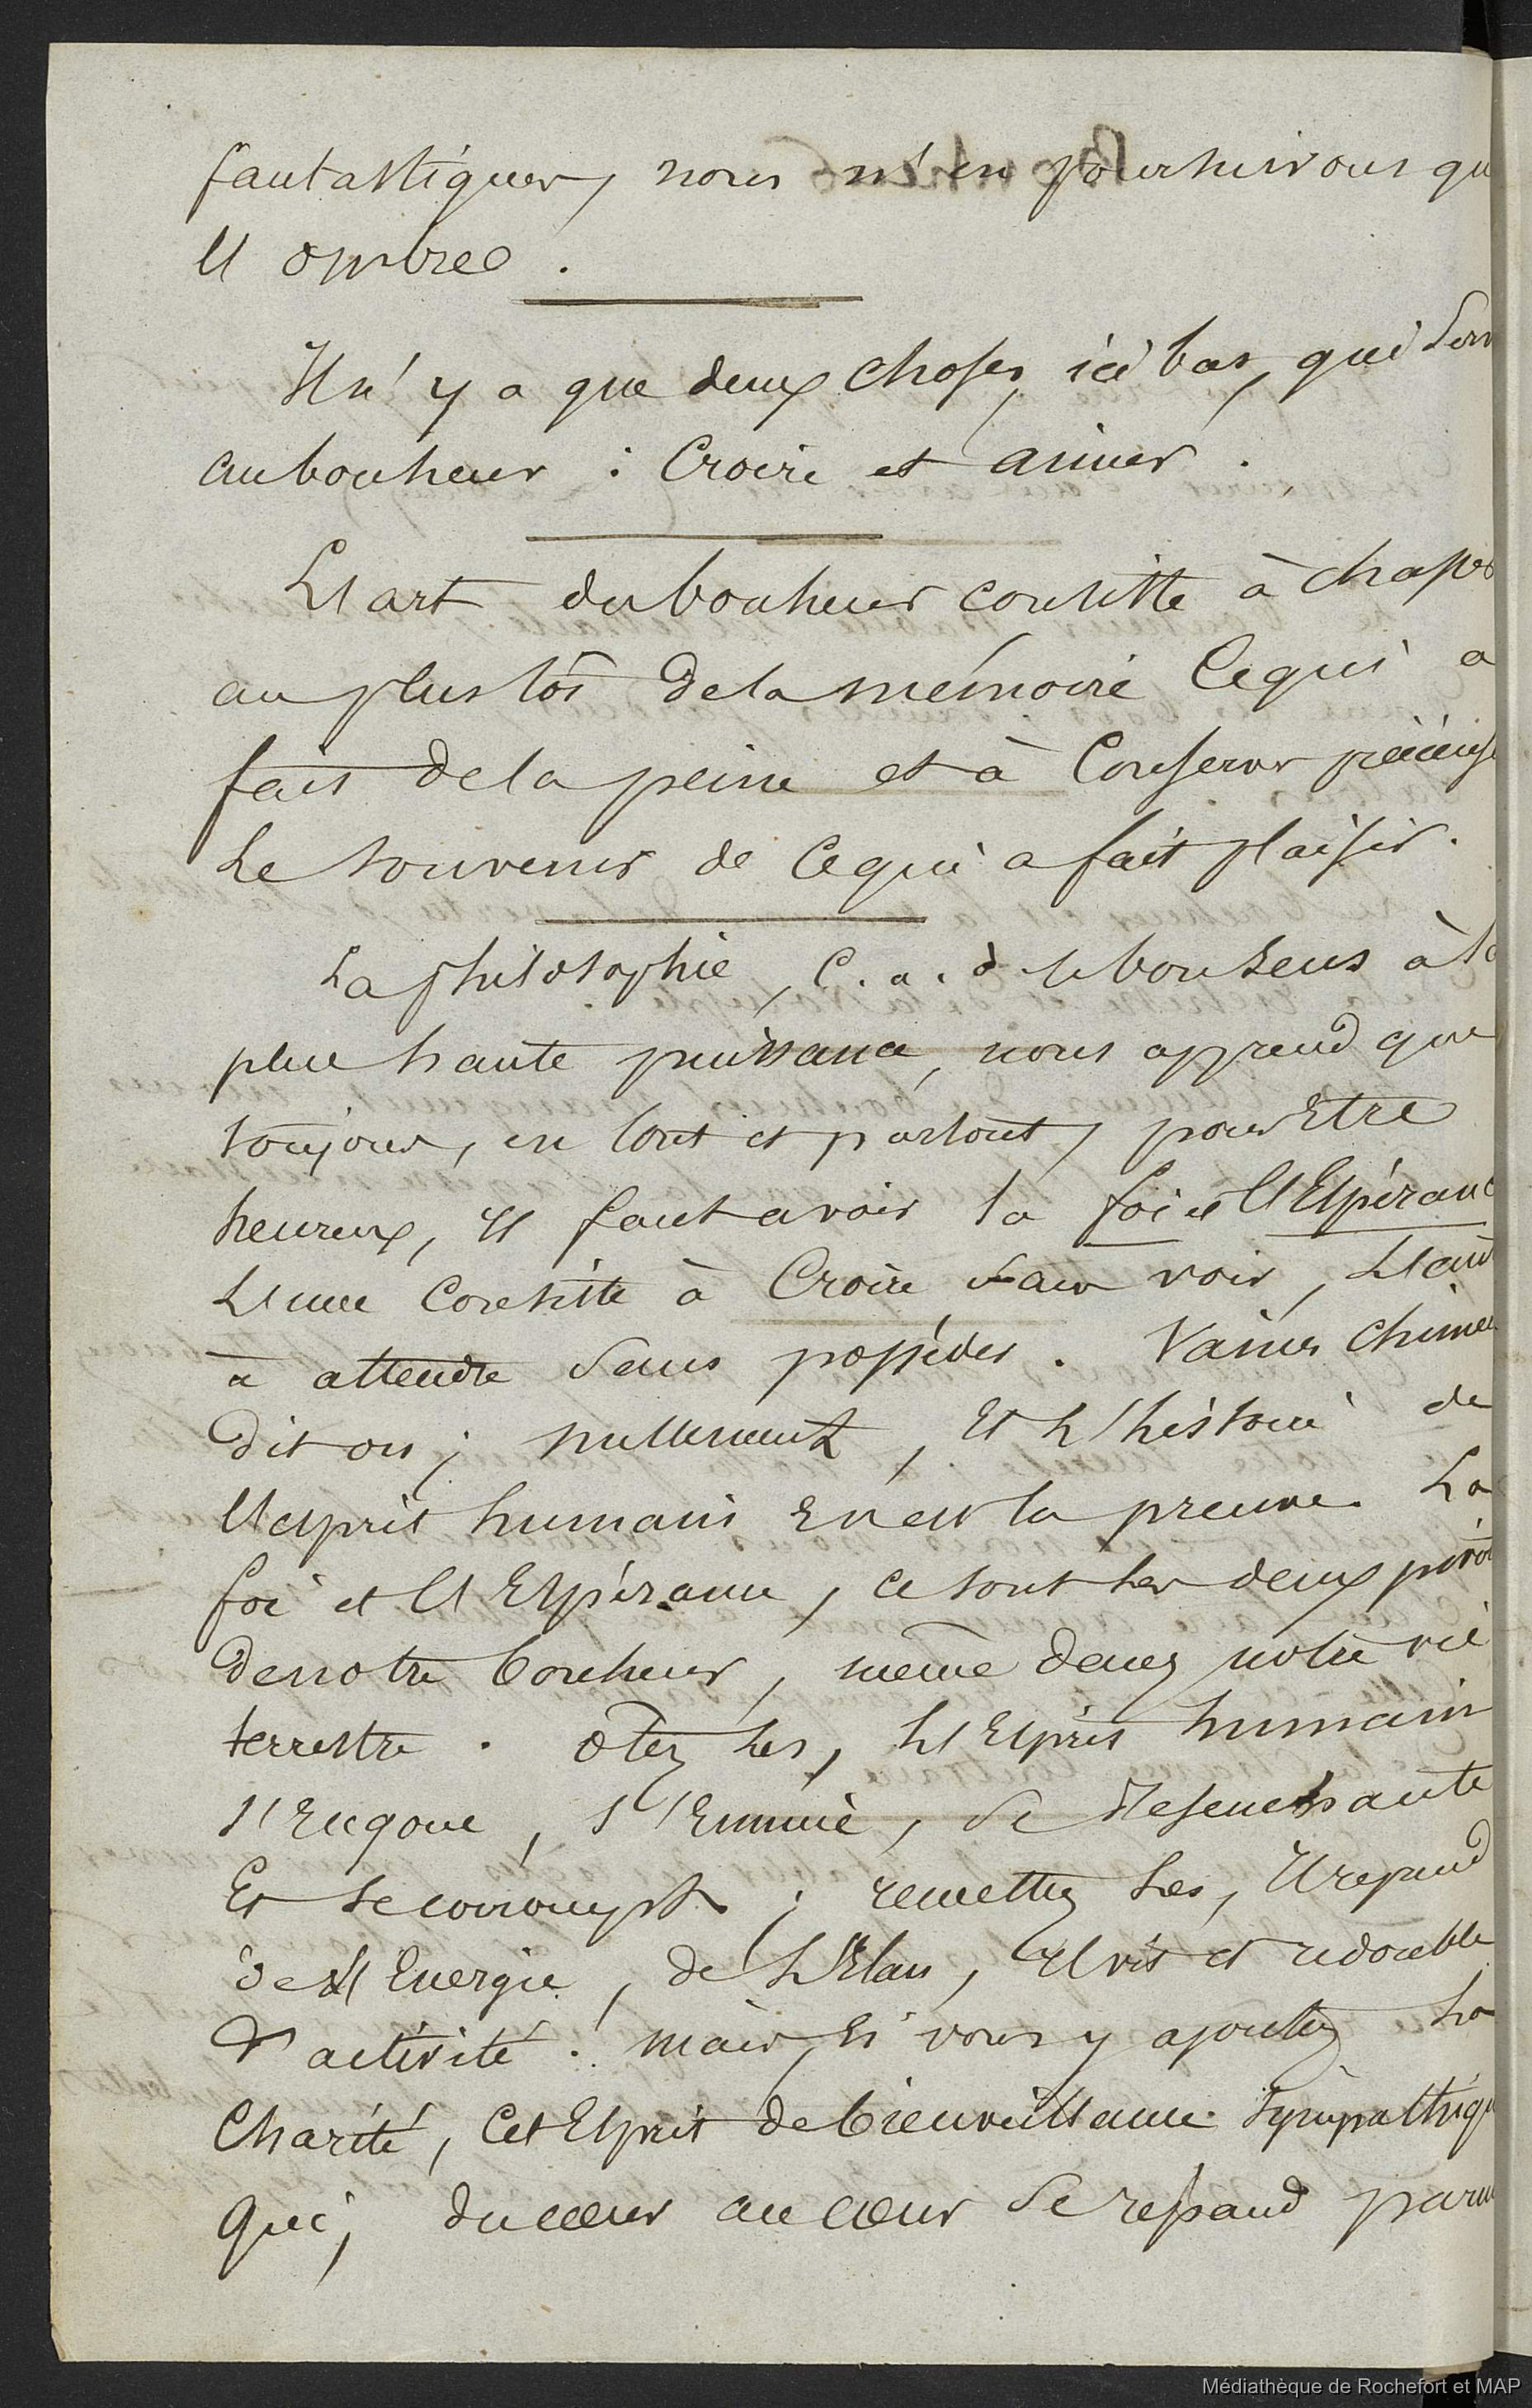 fantastiques, nous n'en poursuivons qu
l'ombre.
Il n'y a que deux choses, ici bas, qui
au bonheur : Croire et aimer.
L'art du bonheur consiste à chasser
au plus tôt de la mémoire Ce qui a
fait de la peine et à Conserver précieuse
Le souvenir de Ce qui a fait plaisir.
La philosophie, C. a. d le bon Sens à la
plus haute puissance, nous apprend que
toujours, en tout et partout, pour Etre
heureux, il faut avoir la foi et l'Espéranc
L'une Consiste à Croire sans voir, L'aut
à attendre Sans posséder. Vaines Chimèr
dit on ; nullement, Et L'histoire de
l'esprit humain En est la preuve. La
foi et l'Espérance, ce sont Les deux pivot
de notre bonheur, même dans notre vie
terrestre. ôtez Les, L'Esprit humain
s'Engoue, s'Ennuie, Se Desenchante
Et se corrompt ; remettez Les, Il reprend
de l'Energie, de L'Elan, Il vit et redouble
d'activité. Mais, Si vous y ajoutez La
Charité, Cet Esprit de bienveillance Sympathiqu
Qui, du coeur au coeur Se répand parm
Médiathèque de Rochefort et MAP